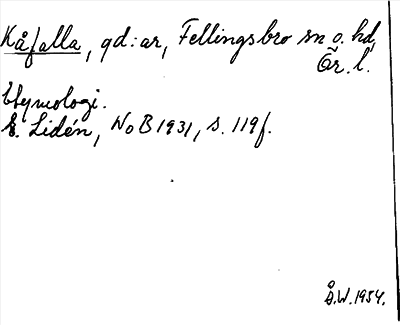 Kåfalla, gd:ar, Fellingsbro sn o. hd,
Ör. l.
Etymologi.
E. Lidén, NoB 1931, s. 119f.
Å.W. 1954.